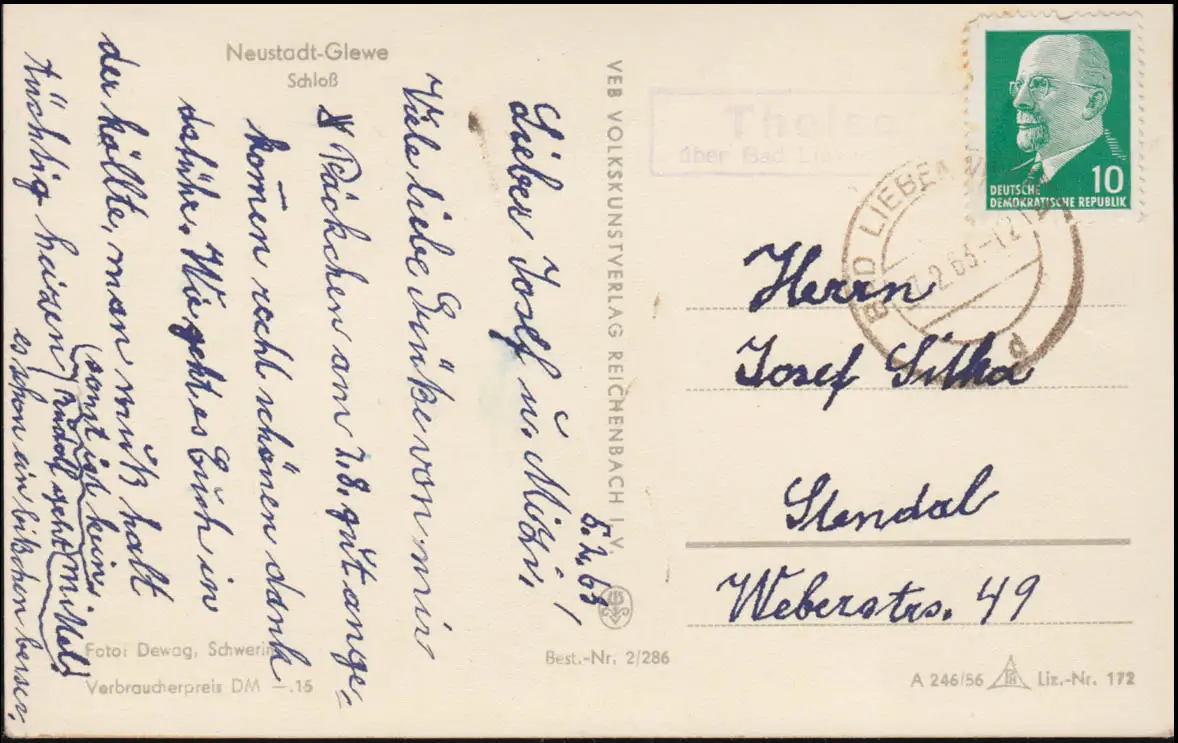 Neustadt-Glewe
Schloß
5.2.63
Lieber Josef u. Mizi,
Viele liebe Grüße von mir
Päckchen am 2.8. gut ange-
komen recht schönen dank
daführ. Wie geht es Euch in
der källte, man muß halt
tüchtig heizen
(sonst ist kein
Mittel!
Rudolf geht
es schon ein bißchen besser.
Foto: Dewag, Schwerin
Verbraucherpreis DM —.15
VEB VOLKSKUNSTVERLAG REICHENBACH I. V.
Best.-Nr. 2/286
über Bad
BAD LIEBEN
2.63-12
d
DEUTSCHE
DEMOKRATISCHE REPUBLIK
10
Herrn
Josef Sitka
Stendal
Weberstrs. 49
A 246/56
Liz.-Nr. 172